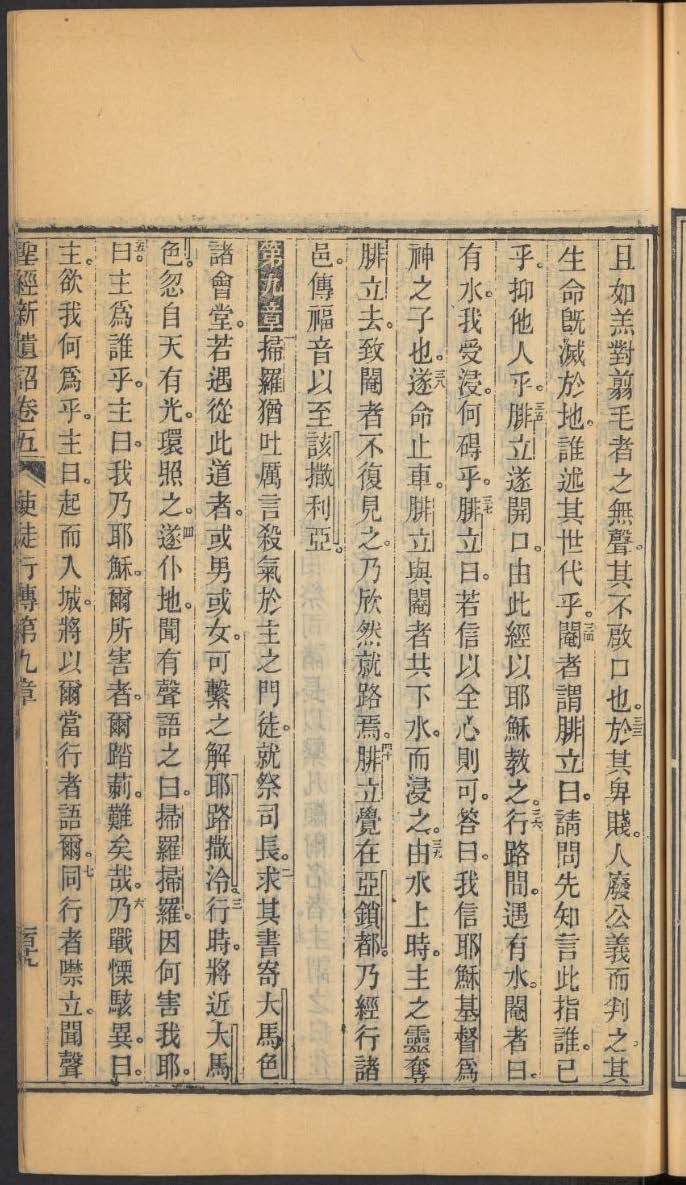 且如羔對翦毛者之無聲。其不啟口也。三三於其卑賤。人廢公義而判之。其
生命旣滅於地。誰述其世代乎。三四閹者謂腓立曰。請問先知言此指誰。己
乎。抑他人乎。三五腓立遂開口。由此經以耶穌教之。三六行路間。遇有水。閹者曰。
有水。我受浸。何碍乎。三七腓立曰。若信以全心則可。答曰。我信耶穌基督爲
神之子也。三八遂命止車。腓立與閹者共下水。而浸之。三九由水上時。主之靈奪
腓立去。致閹者不復見之。乃欣然就路焉。四十腓立覺在亞鎖都。乃經行諸
邑。傳福音以至該撒利亞。
第九章掃羅猶吐厲言殺氣於主之門徒。就祭司長。二求其書寄大馬色
諸會堂。若遇從此道者。或男或女。可繫之解耶路撒泠。三行時。將近大馬
色。忽自天有光。環照之。四遂仆地。聞有聲語之曰。掃羅掃羅。因何害我耶。
五曰。主爲誰乎。主曰。我乃耶穌。爾所害者。爾踏莿。難矣哉。六乃戰慄駭異。曰。
主。欲我何爲乎。主曰。起而入城。將以爾當行者語爾。七同行者噤立。聞聲
聖經新遺詔卷五 使徒行傳第九章